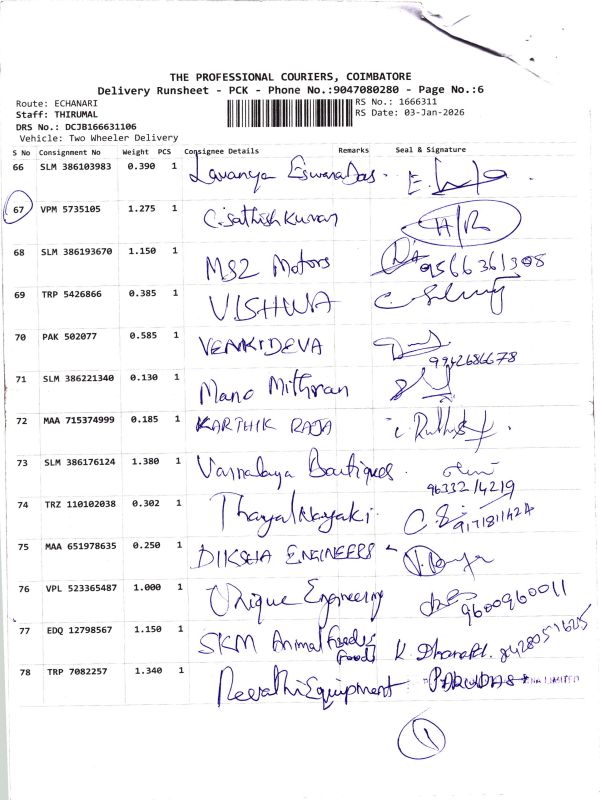 THE PROFESSIONAL COURIERS, COIMBATORE
Delivery Runsheet - PCK - Phone No.:9047080280 - Page No.:6
Route: ECHANARI RS No.: 1666311
Staff: THIRUMAL RS Date: 03-Jan-2026
DRS No.: DCJB166631106
Vehicle: Two Wheeler Delivery
S No Consignment No Weight PCS Consignee Details Remarks Seal & Signature
66 SLM 386103983 0.390 1 Lavanya EswaraDas.
67 VPM 5735105 1.275 1 C.Sathish Kumar H/R
68 SLM 386193670 1.150 1 MS2 Motors 9566361308
69 TRP 5426866 0.385 1 VISHWA
70 PAK 502077 0.585 1 VENKIDEVA
9942686678
71 SLM 386221340 0.130 1 Mano Mithran
72 MAA 715374999 0.185 1 KARTHIK RAJA
73 SLM 386176124 1.380 1 Varnalaya Boutiques.
96332 14219
74 TRZ 110102038 0.302 1 Thayalnayaki. 9171811424
75 MAA 651978635 0.250 1 DIKSHA ENGINEERS
76 VPL 523365487 1.000 1 Unique Engineering 9600960011
77 EDQ 12798567 1.150 1 SKM Animal Feeds Foods K.
78 TRP 7082257 1.340 1 Revathi Equipment LIMITED
1